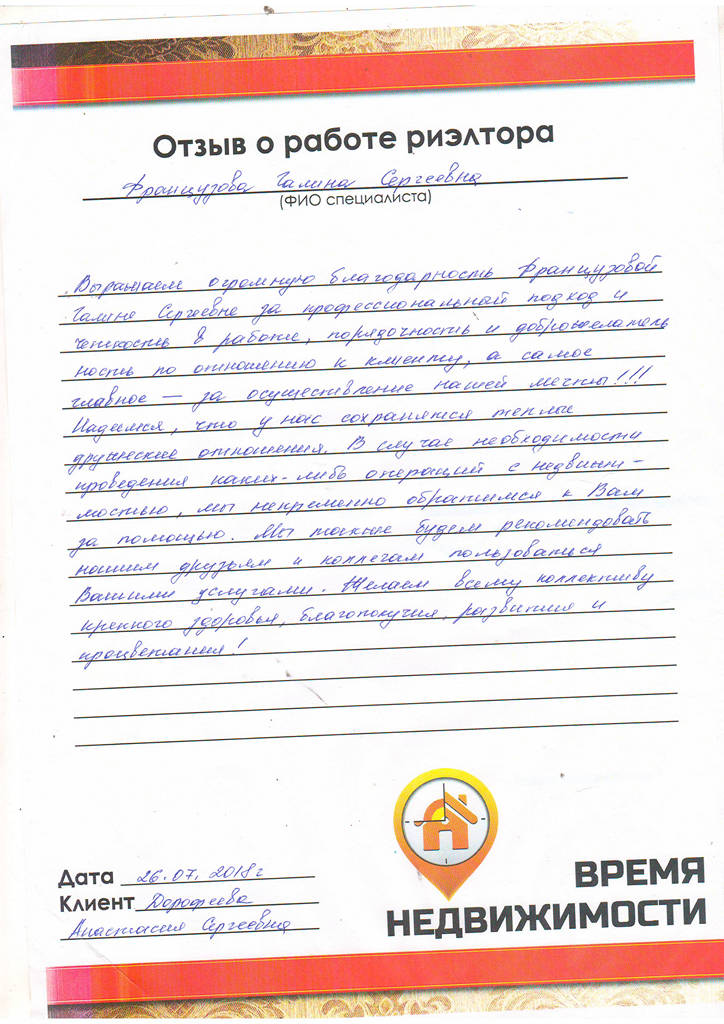 Отзыв о работе риэлтора
Французова Галина Сергеевна
(ФИО специалиста)
Выражаем огромную благодарность Французовой
Галине Сергеевне за профессиональный подход и
четкость в работе, порядочность и доброжелатель
ность по отношению к клиенту, а самое
главное — за осуществление нашей мечты!!!
Надеемся, что у нас сохранятся теплые
дружеские отношения. В случае необходимости
проведения каких-либо операций с недвижи-
мостью, мы непременно обратимся к Вам
за помощью. Мы также будем рекомендовать
нашим друзьям и коллегам пользоваться
Вашими услугами. Желаем всему коллективу
крепкого здоровья, благополучия, развития и
процветания!
Дата 26.07.2018г
Клиент Дорофеева
Анастасия Сергеевна
ВРЕМЯ
НЕДВИЖИМОСТИ